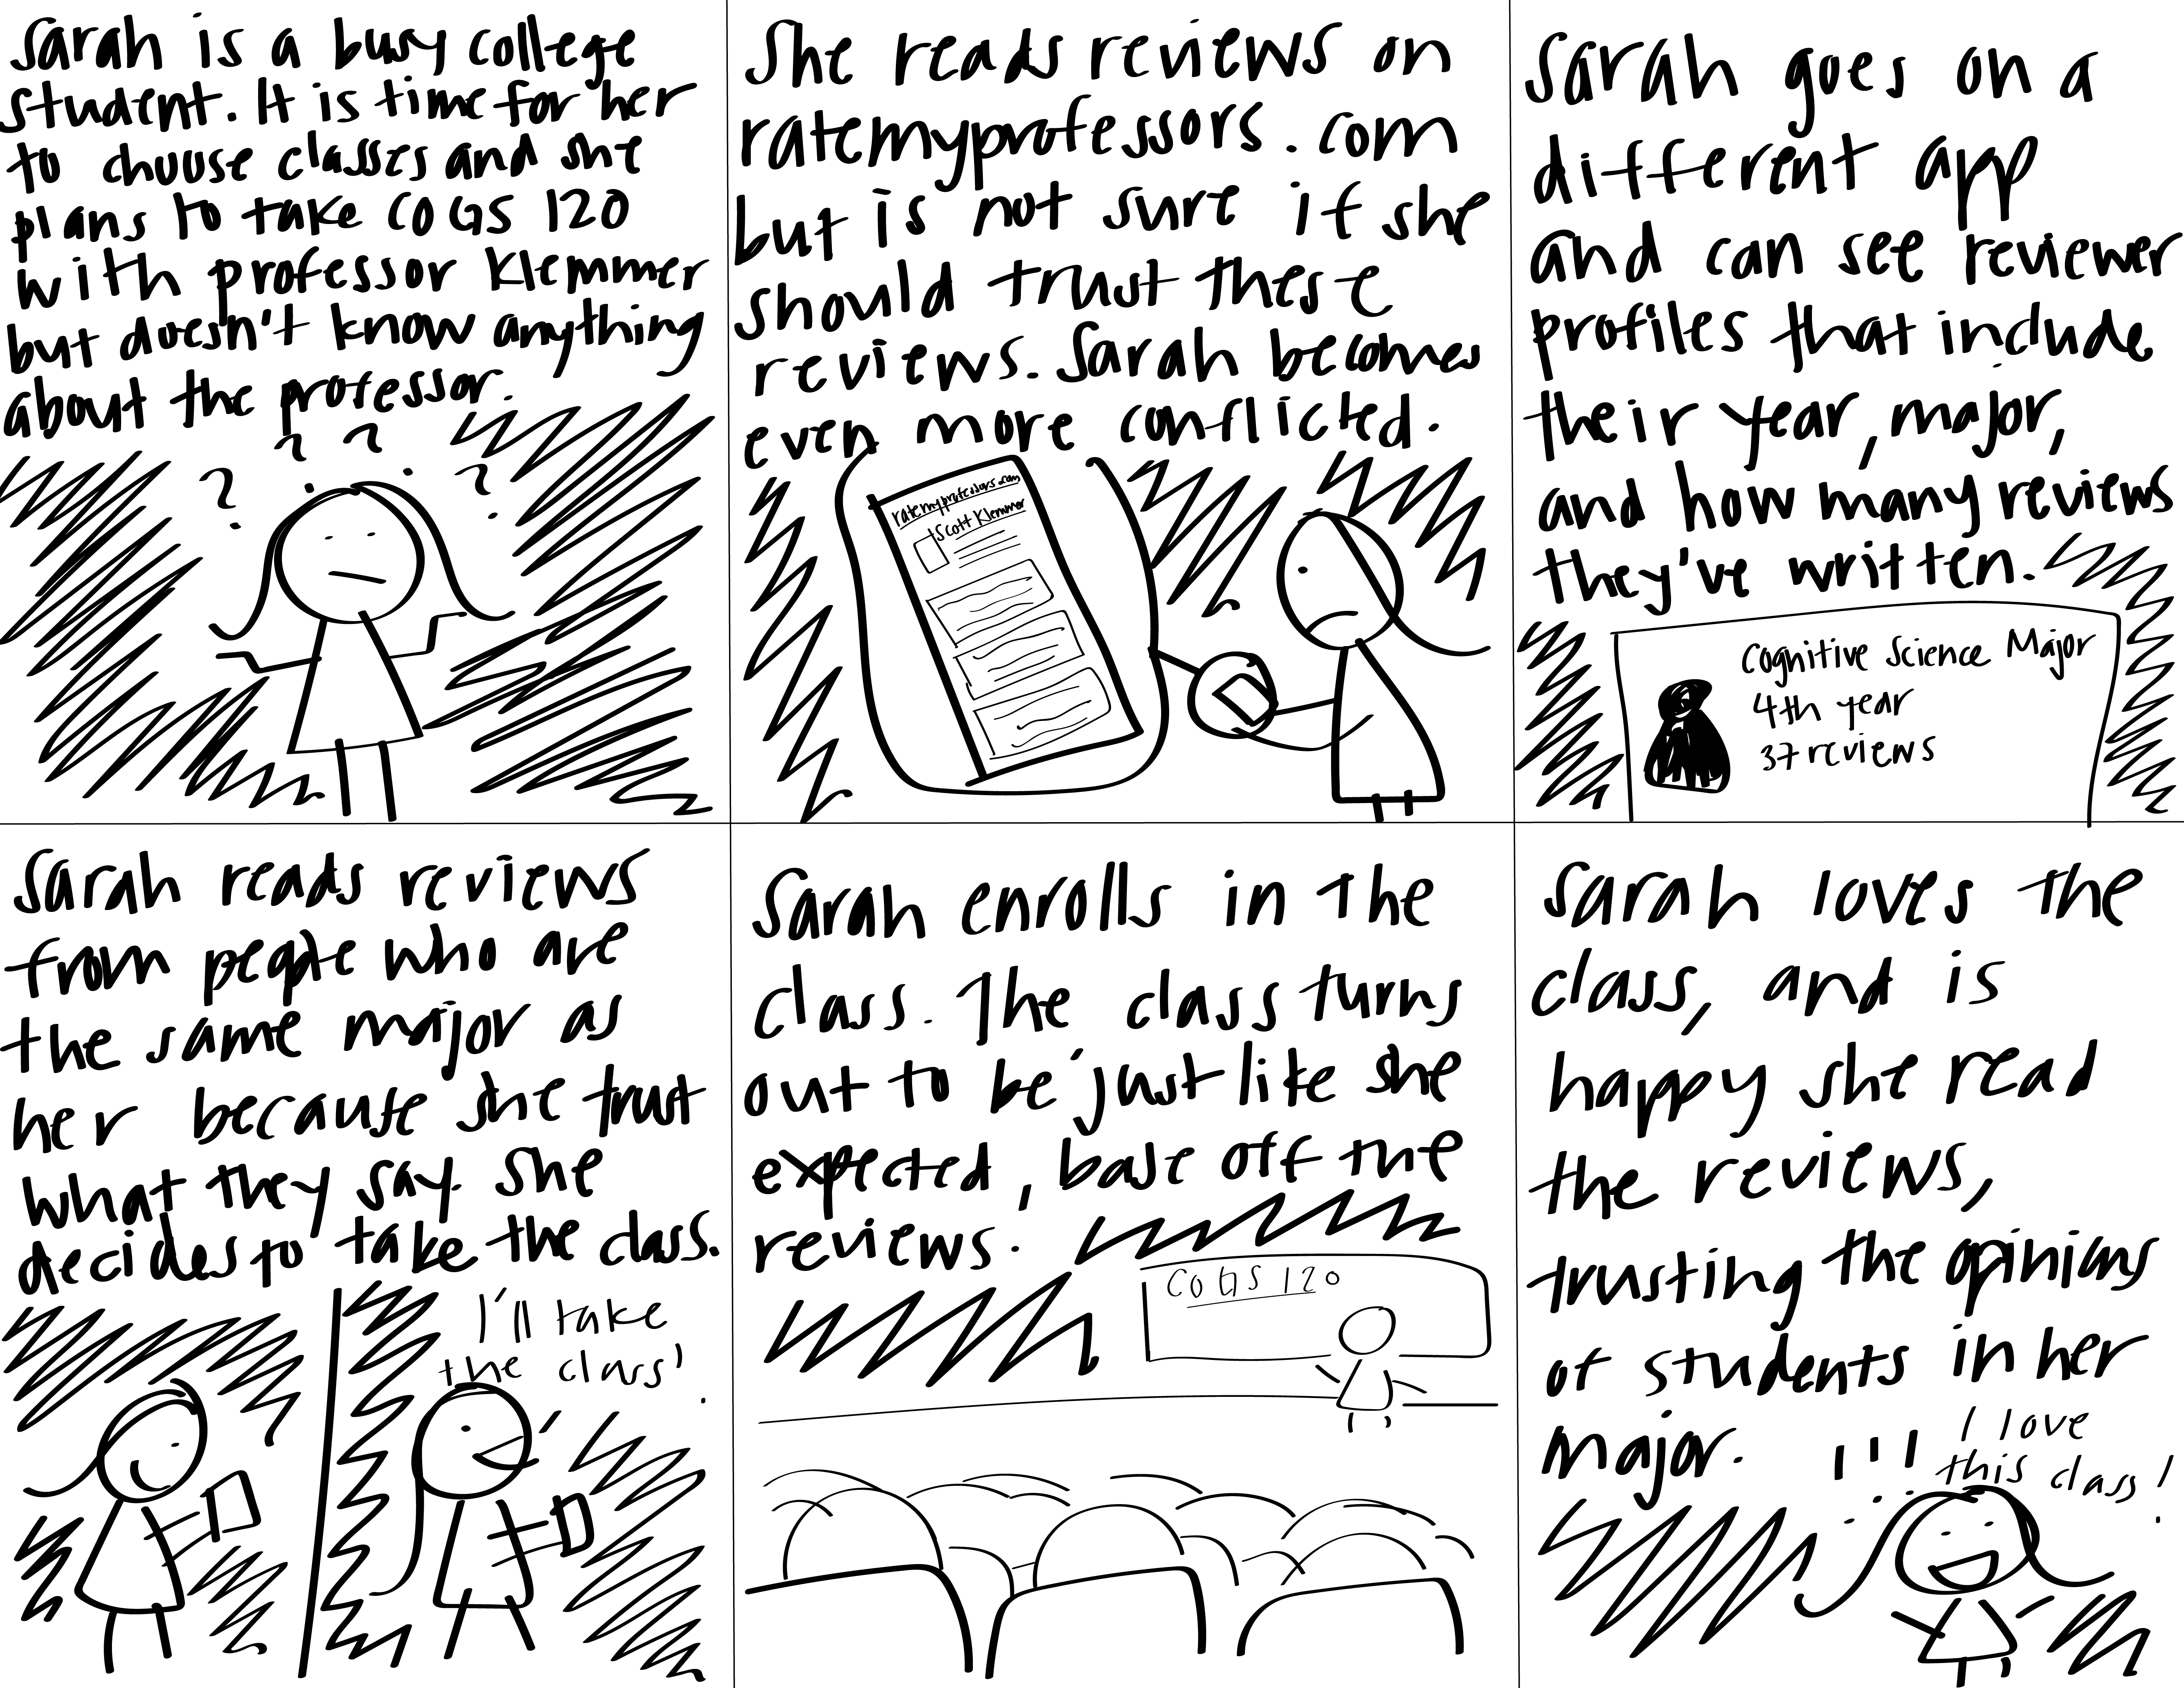 Sarah is a busy college
student. It is time for her
to choose classes and she
plans to take COGS 120
with professor Klemmer
but doesn't know anything
about the professor.
? ? ? ?
She reads reviews on
ratemyprofessors.com
but is not sure if she
should trust these
reviews. Sarah becomes
even more conflicted.
ratemyprofessors.com
Scott Klemmer
Sarah goes on a
different app
and can see reviewer
profiles that include
their year, major,
and how many reviews
they've written.
Cognitive Science Major
4th year
37 reviews
Sarah reads reviews
from people who are
the same major as
her because she trust
what they say. She
decides to take the class.
I'll take
the class!
Sarah enrolls in the
class. The class turns
out to be just like she
expected, base off the
reviews.
COGS 120
Sarah loves the
class, and is
happy she read
the reviews,
trusting the opinions
of students in her
major.
! ! !
I love
this class!